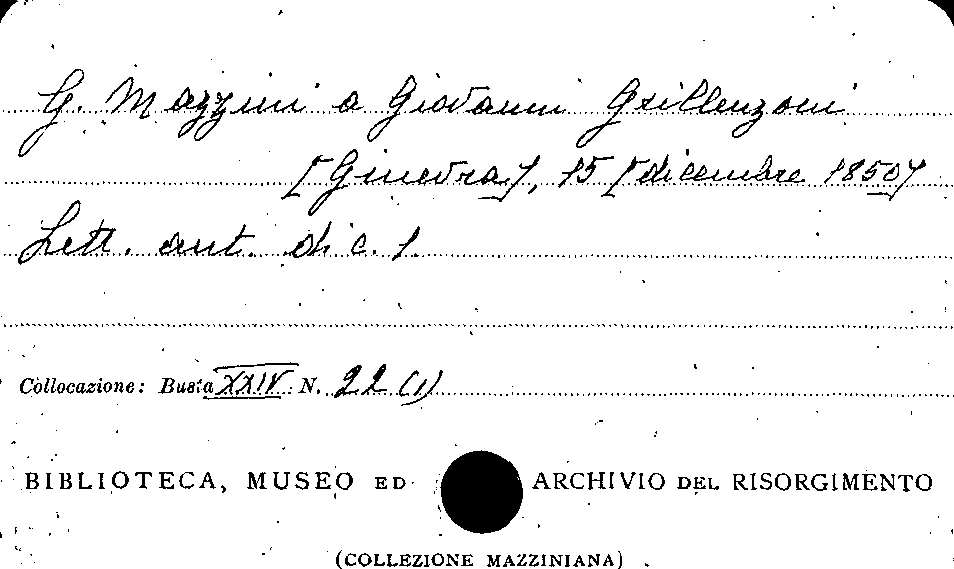 G. Mazzini a Giovanni Grillenzoni
[Ginevra], 15 [dicembre 1850]
Lett. aut. di c. 1.
Collocazione: Busta XXIV N. 22 (1)
BIBLIOTECA, MUSEO ED ARCHIVIO DEL RISORGIMENTO
(COLLEZIONE MAZZINIANA)